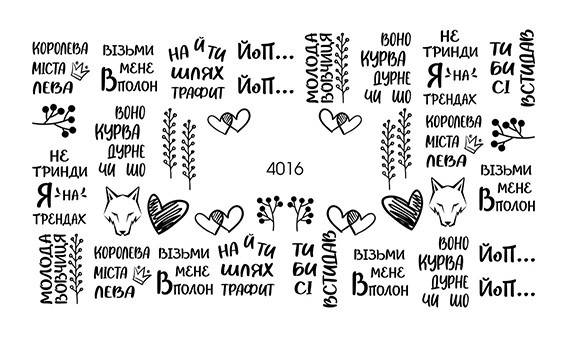 КОРОЛЕВА
МІСТА
ЛЕВА
ВІЗЬМИ
МЕНЕ
В ПОЛОН
НАЙТИ
ШЛЯХ
ТРАФИТ
ЙОП...
ЙОП...
МОЛОДА
ВОВЧИЦЯ
ВОНО
КУРВА
ДУРНЕ
ЧИ ШО
НЕ
ТРИНДИ
Я НА
ТРЕНДАХ
ТИ
БИ
СІ
ВСТИДАВ
ВОНО
КУРВА
ДУРНЕ
ЧИ ШО
КОРОЛЕВА
МІСТА
ЛЕВА
НЕ
ТРИНДИ
Я НА
ТРЕНДАХ
4016
ВІЗЬМИ
МЕНЕ
В ПОЛОН
МОЛОДА
ВОВЧИЦЯ
КОРОЛЕВА
МІСТА
ЛЕВА
ВІЗЬМИ
МЕНЕ
В ПОЛОН
НАЙТИ
ШЛЯХ
ТРАФИТ
ТИ
БИ
СІ
ВСТИДАВ
ВІЗЬМИ
МЕНЕ
В ПОЛОН
ВОНО
КУРВА
ДУРНЕ
ЧИ ШО
ЙОП...
ЙОП...